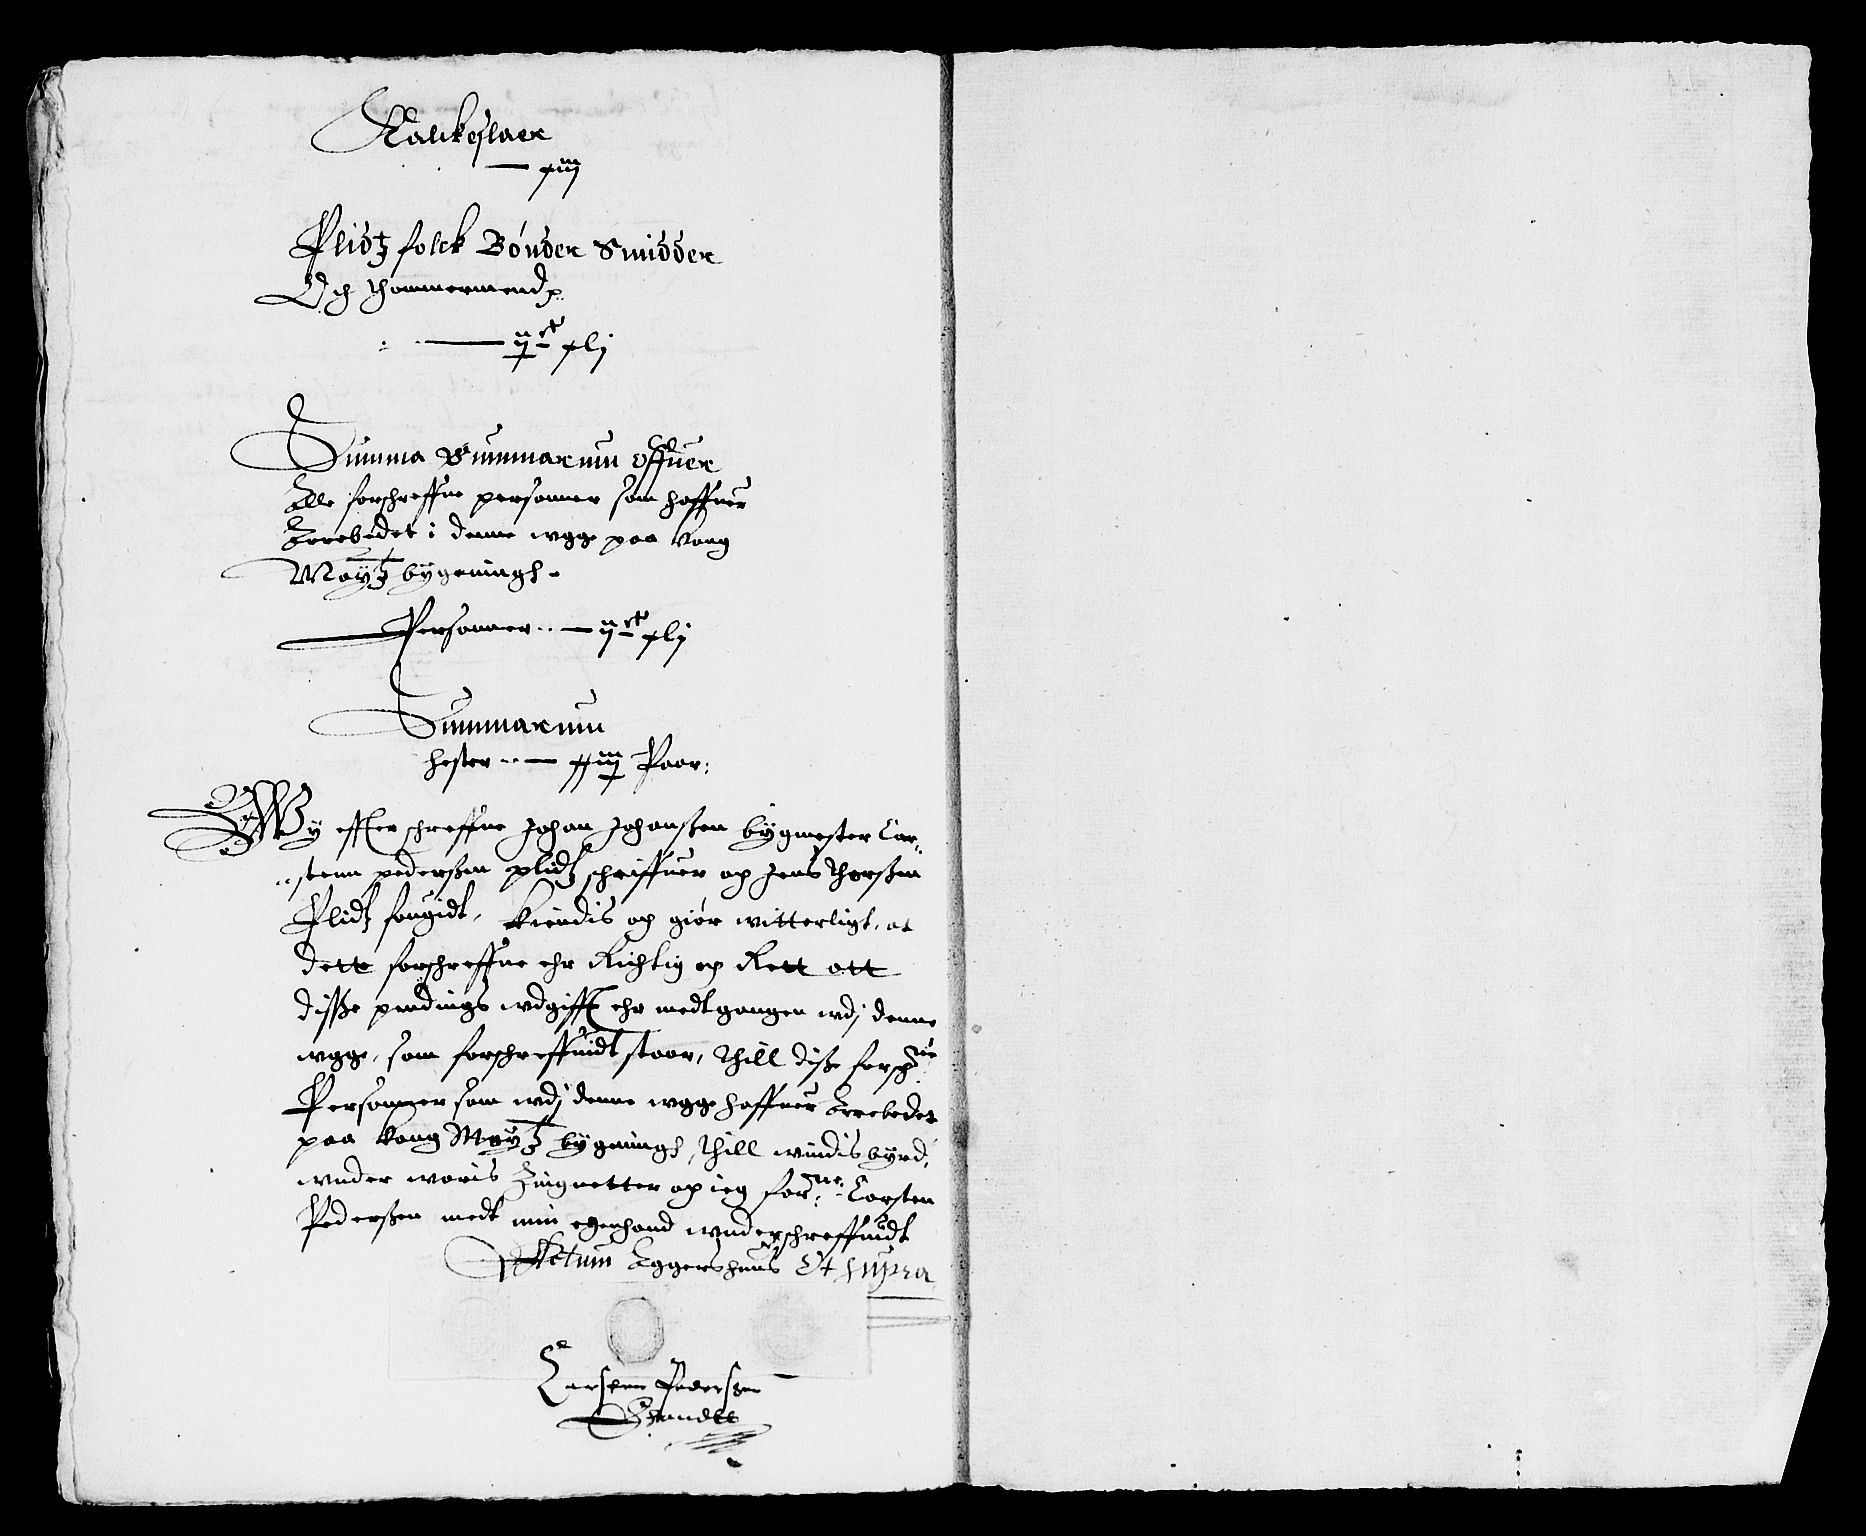 Kalckeslaer
— xiiij
Plidtz folck Bønder Smidder
Och thømmermend
— ij ct xlj
Summa Summarum offuer
Alle forschreffne personner som haffuer
Arrebedet i denne wgge paa Kong
Maytz bygeningh.
Personner — ij ct xlj
Summarum
Hester — xxiiij Paar:
Wy effterschreffne Johan Johanssen bygmester Car-
stenn pederssen plidtz schriffuer och Jens Therssen
Plidtz fougidt, Kiendis och giør witterligt, at
dette forschreffne ehr Richtig och Rett att
disse pendings wdgifft ehr medtgangen wdj denne
wgge, som forschreffuidt staar, thill disse forschne
Personner som wdj denne wgge haffuer Arrebedet
paa Kong Maytz bygningh, thill windisbyrd,
wnder woris Zingnetter och ieg forne: Carsten
Pederssen medt min egenhand wnderschreffuidt
Actum Aggershuus Ut supra
Carstenn Pederssen
Strandtt